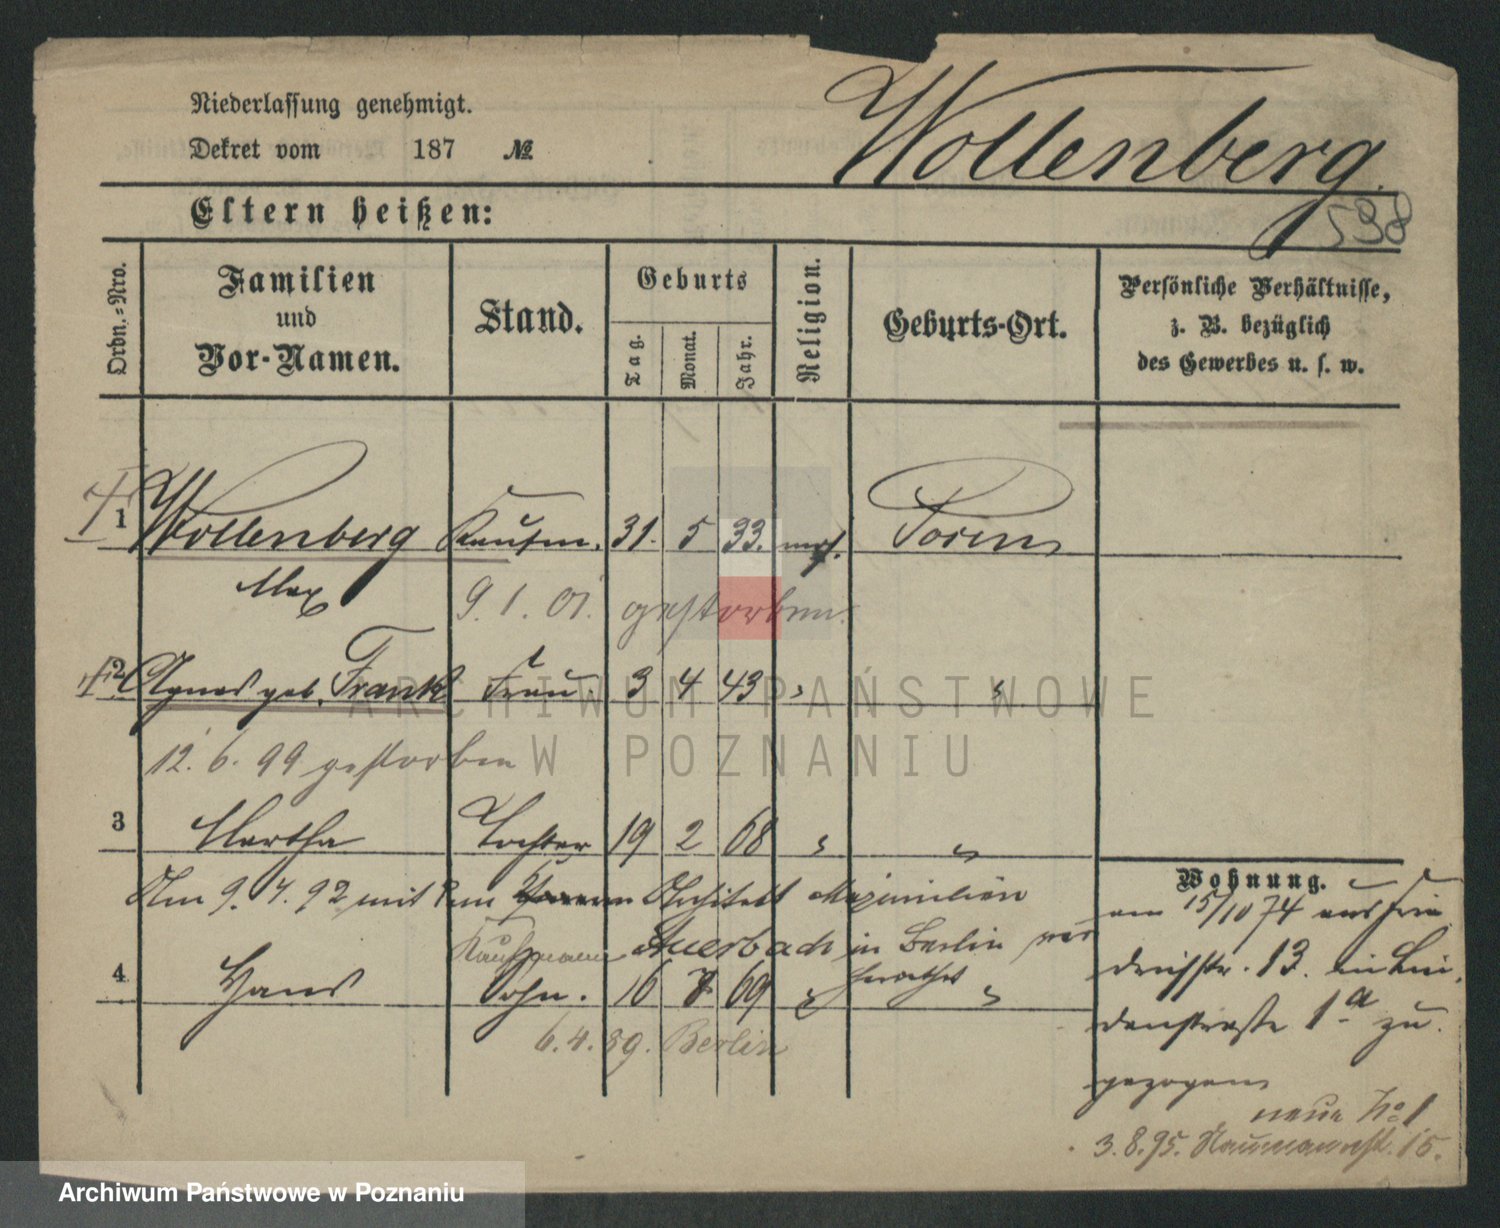 Niederlassung genehmigt.
Dekret vom 187 №
Wollenberg.
538
Eltern heißen:
Ordn.-Nro.
Familien
und
Vor-Namen.
Stand.
Geburts
Tag.
Monat.
Jahr.
Religion.
Geburts-Ort.
Persönliche Verhältnisse,
z. B. bezüglich
des Gewerbes u. s. w.
1 Wollenberg Kaufm. 31. 5 33. mos. Posen
Max
9. 1. 01. gestorben.
2 Agnes geb. Frankl Frau. 3 4 43 " "
12. 6. 99 gestorben
3 Martha Tochter 19 2 68 " "
Am 9. 4. 92 mit dem Architekt Maximilian
Auerbach in Berlin ver
heirathet
Kaufmann
4 Hans Sohn. 16 8 69 " "
6. 4. 89. Berlin
Wohnung.
am 15/10 74 aus Frie
drichstr. 13. in Lin
denstraße 1a zu
gezogen
neue No 1
3. 8. 95. Naumannstr. 15.
ARCHIWUM PAŃSTWOWE
W POZNANIU
Archiwum Państwowe w Poznaniu